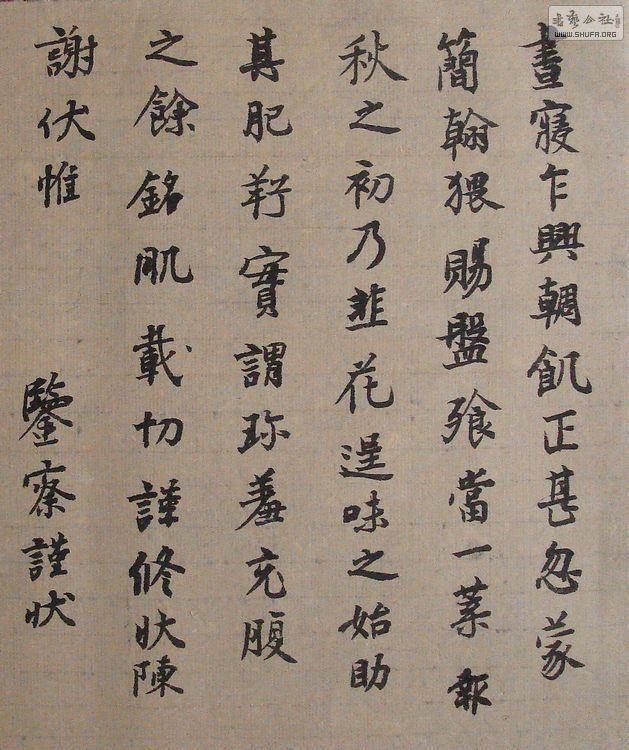 晝寢乍興輖飢正甚忽蒙
簡翰猥賜盤飧當一葉報
秋之初乃韭花逞味之始助
其肥羜實謂珍羞充腹
之餘銘肌載切謹修狀陳
謝伏惟 鑒察謹狀
書藝公社
WWW.SHUFA.ORG